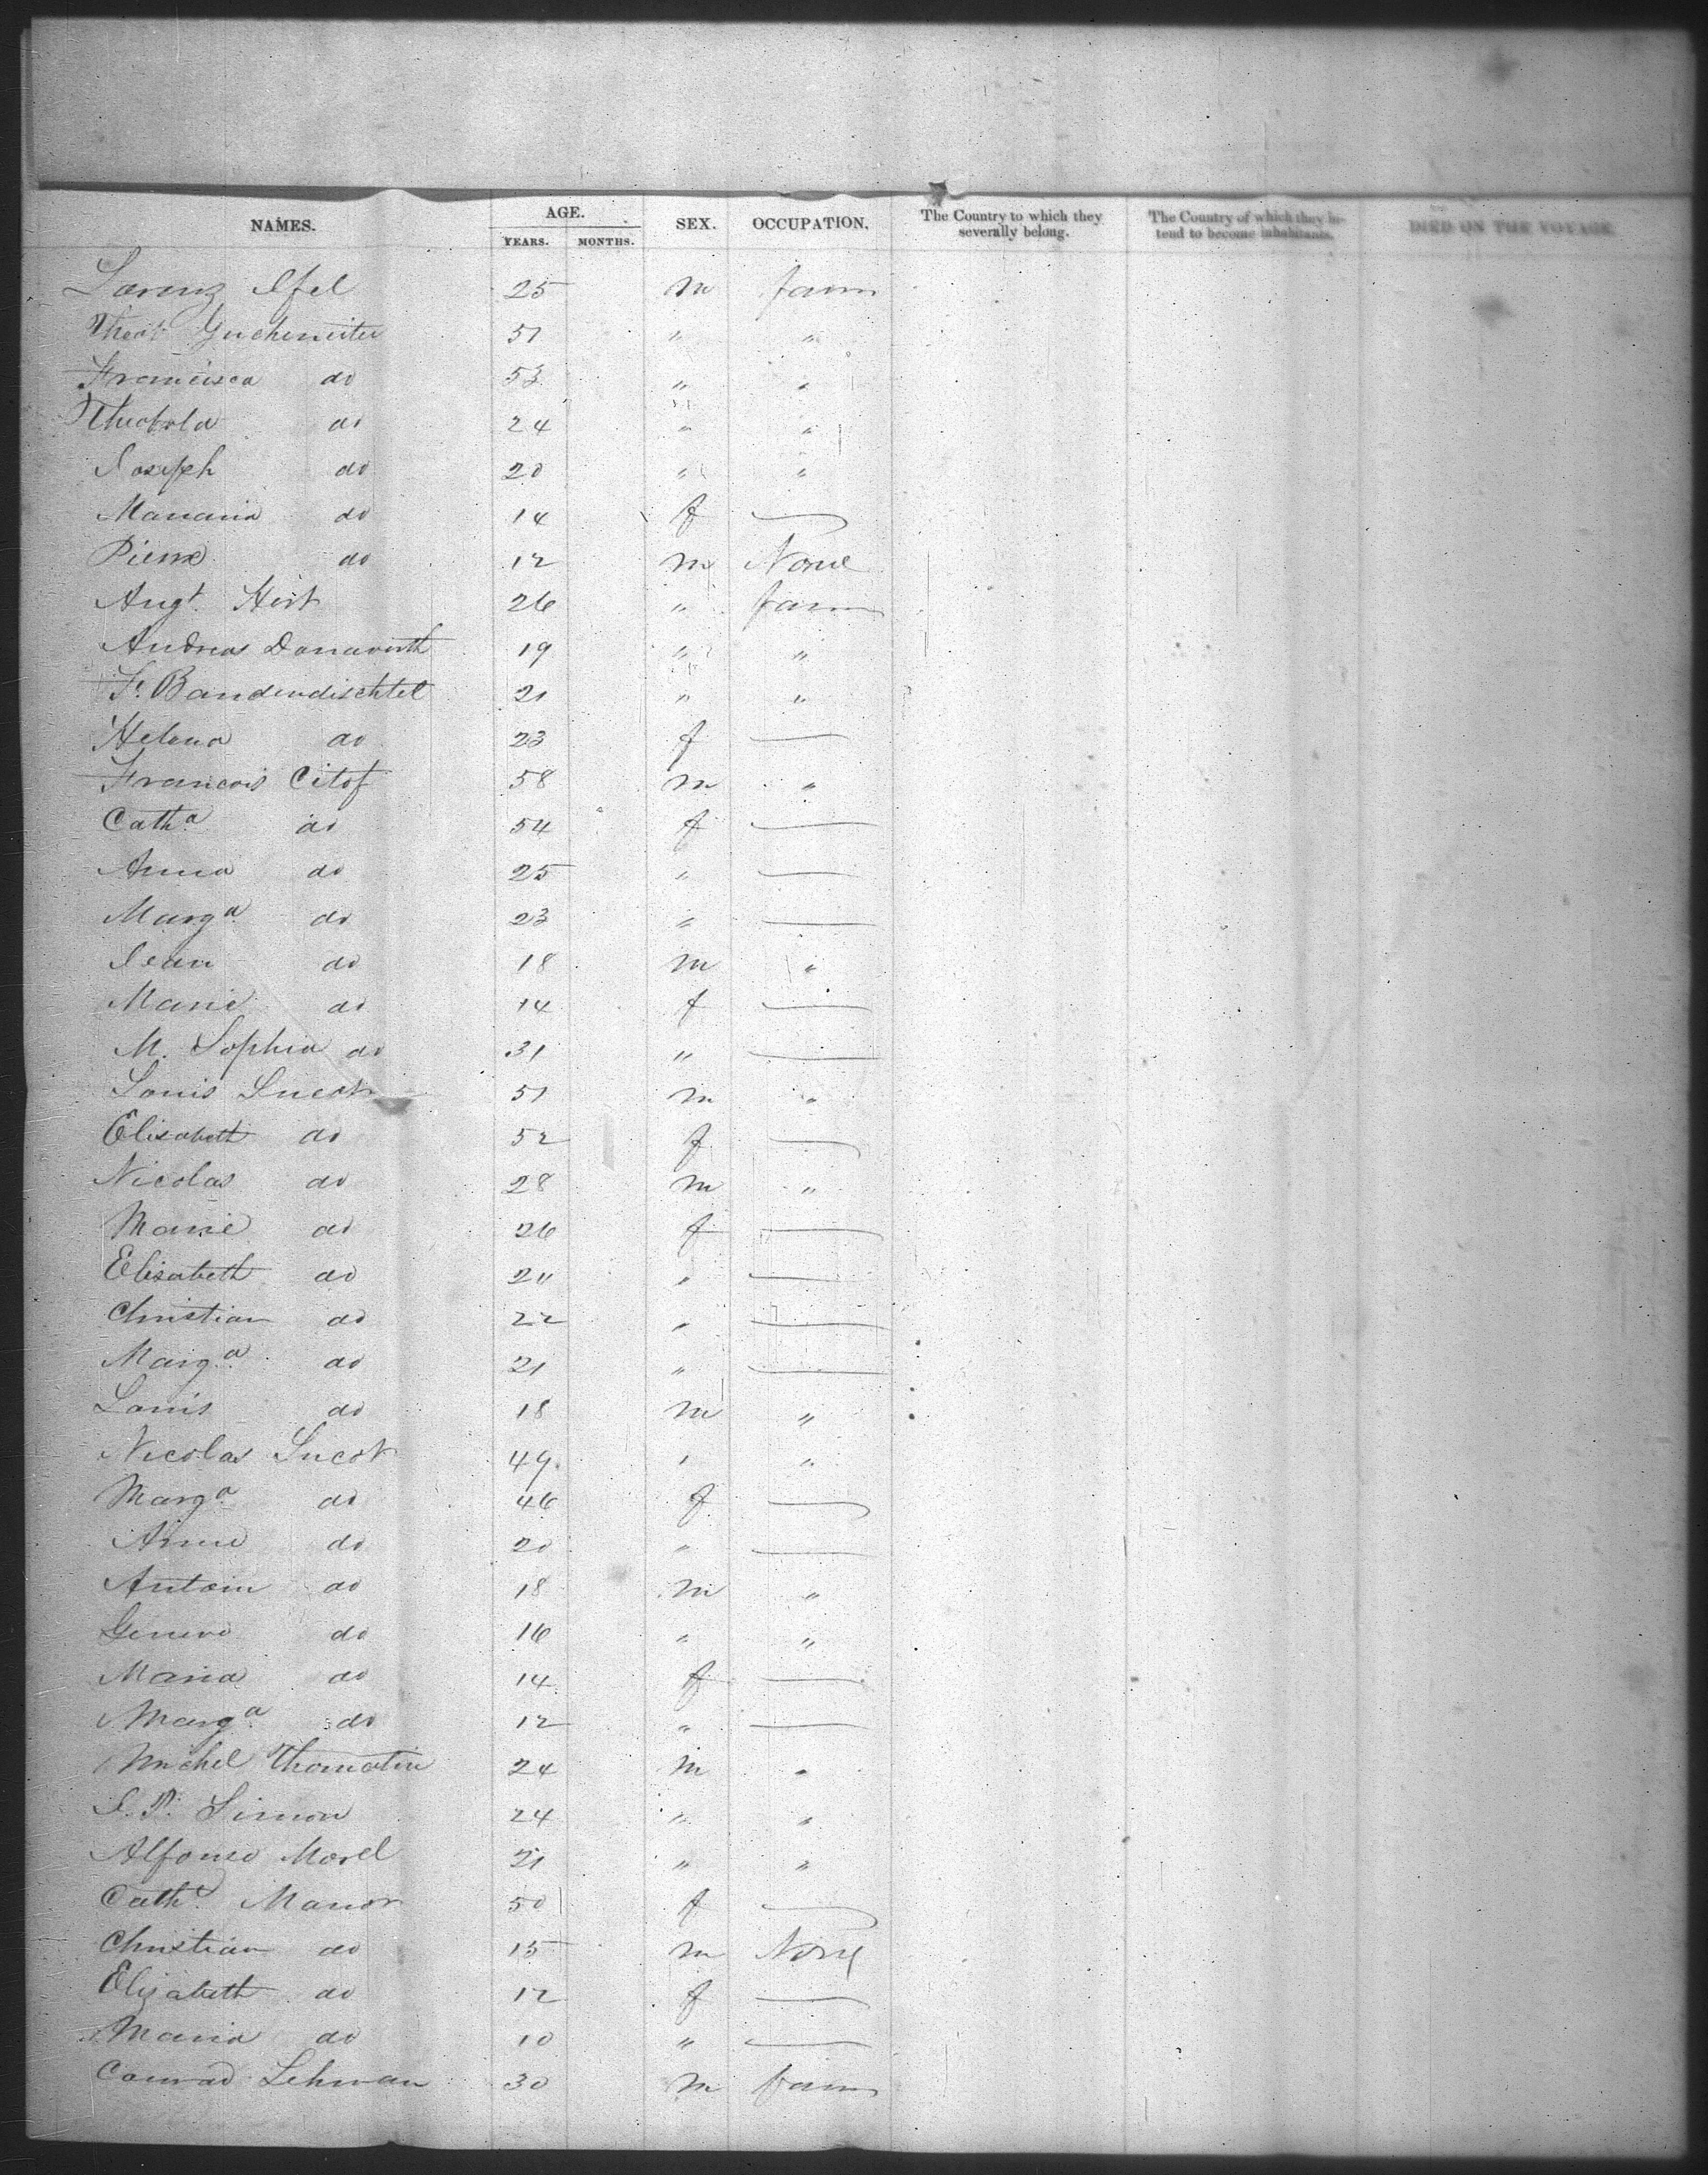 NAMES. AGE. SEX. OCCUPATION. The Country to which they severally belong. The Country of which they intend to become inhabitants. DIED ON THE VOYAGE
YEARS. MONTHS.
Lorenz Ifel 25 m farm
Theob 51 " "
Francisca do 53 " "
Theobold do 24 " "
Joseph do 20 " "
Manaria do 14 f —
Pierre do 12 m None
Augt. Hirt 26 " farm
Andreas Donawirth 19 " "
Fr. Bandendischtel 21 " "
Helena do 23 f —
Francois Citof 58 m "
Catha do 54 f —
Anna do 25 " —
Marga do 23 " —
Jean do 18 m "
Marie do 14 f —
M. Sophia do 31 " —
Louis Lucot 51 m "
Elisabeth do 52 f —
Nicolas do 28 m "
Marie do 26 f —
Elisabeth do 24 " —
Christian do 22 " —
Marga do 21 " —
Louis do 18 m "
Nicolas Lucot 49 " "
Marga do 46 f —
Anne do 20 " —
Antoin do 18 m "
do 16 " "
Maria do 14 f —
Marga do 12 " —
Michel Thomatin 24 m "
J. P. Simon 24 " "
Alfonso Morel 21 " "
Cath. Manor 50 f —
Christian do 15 m None
Elizabeth do 12 f —
Maria do 10 " —
Conrad Lehman 30 m farm